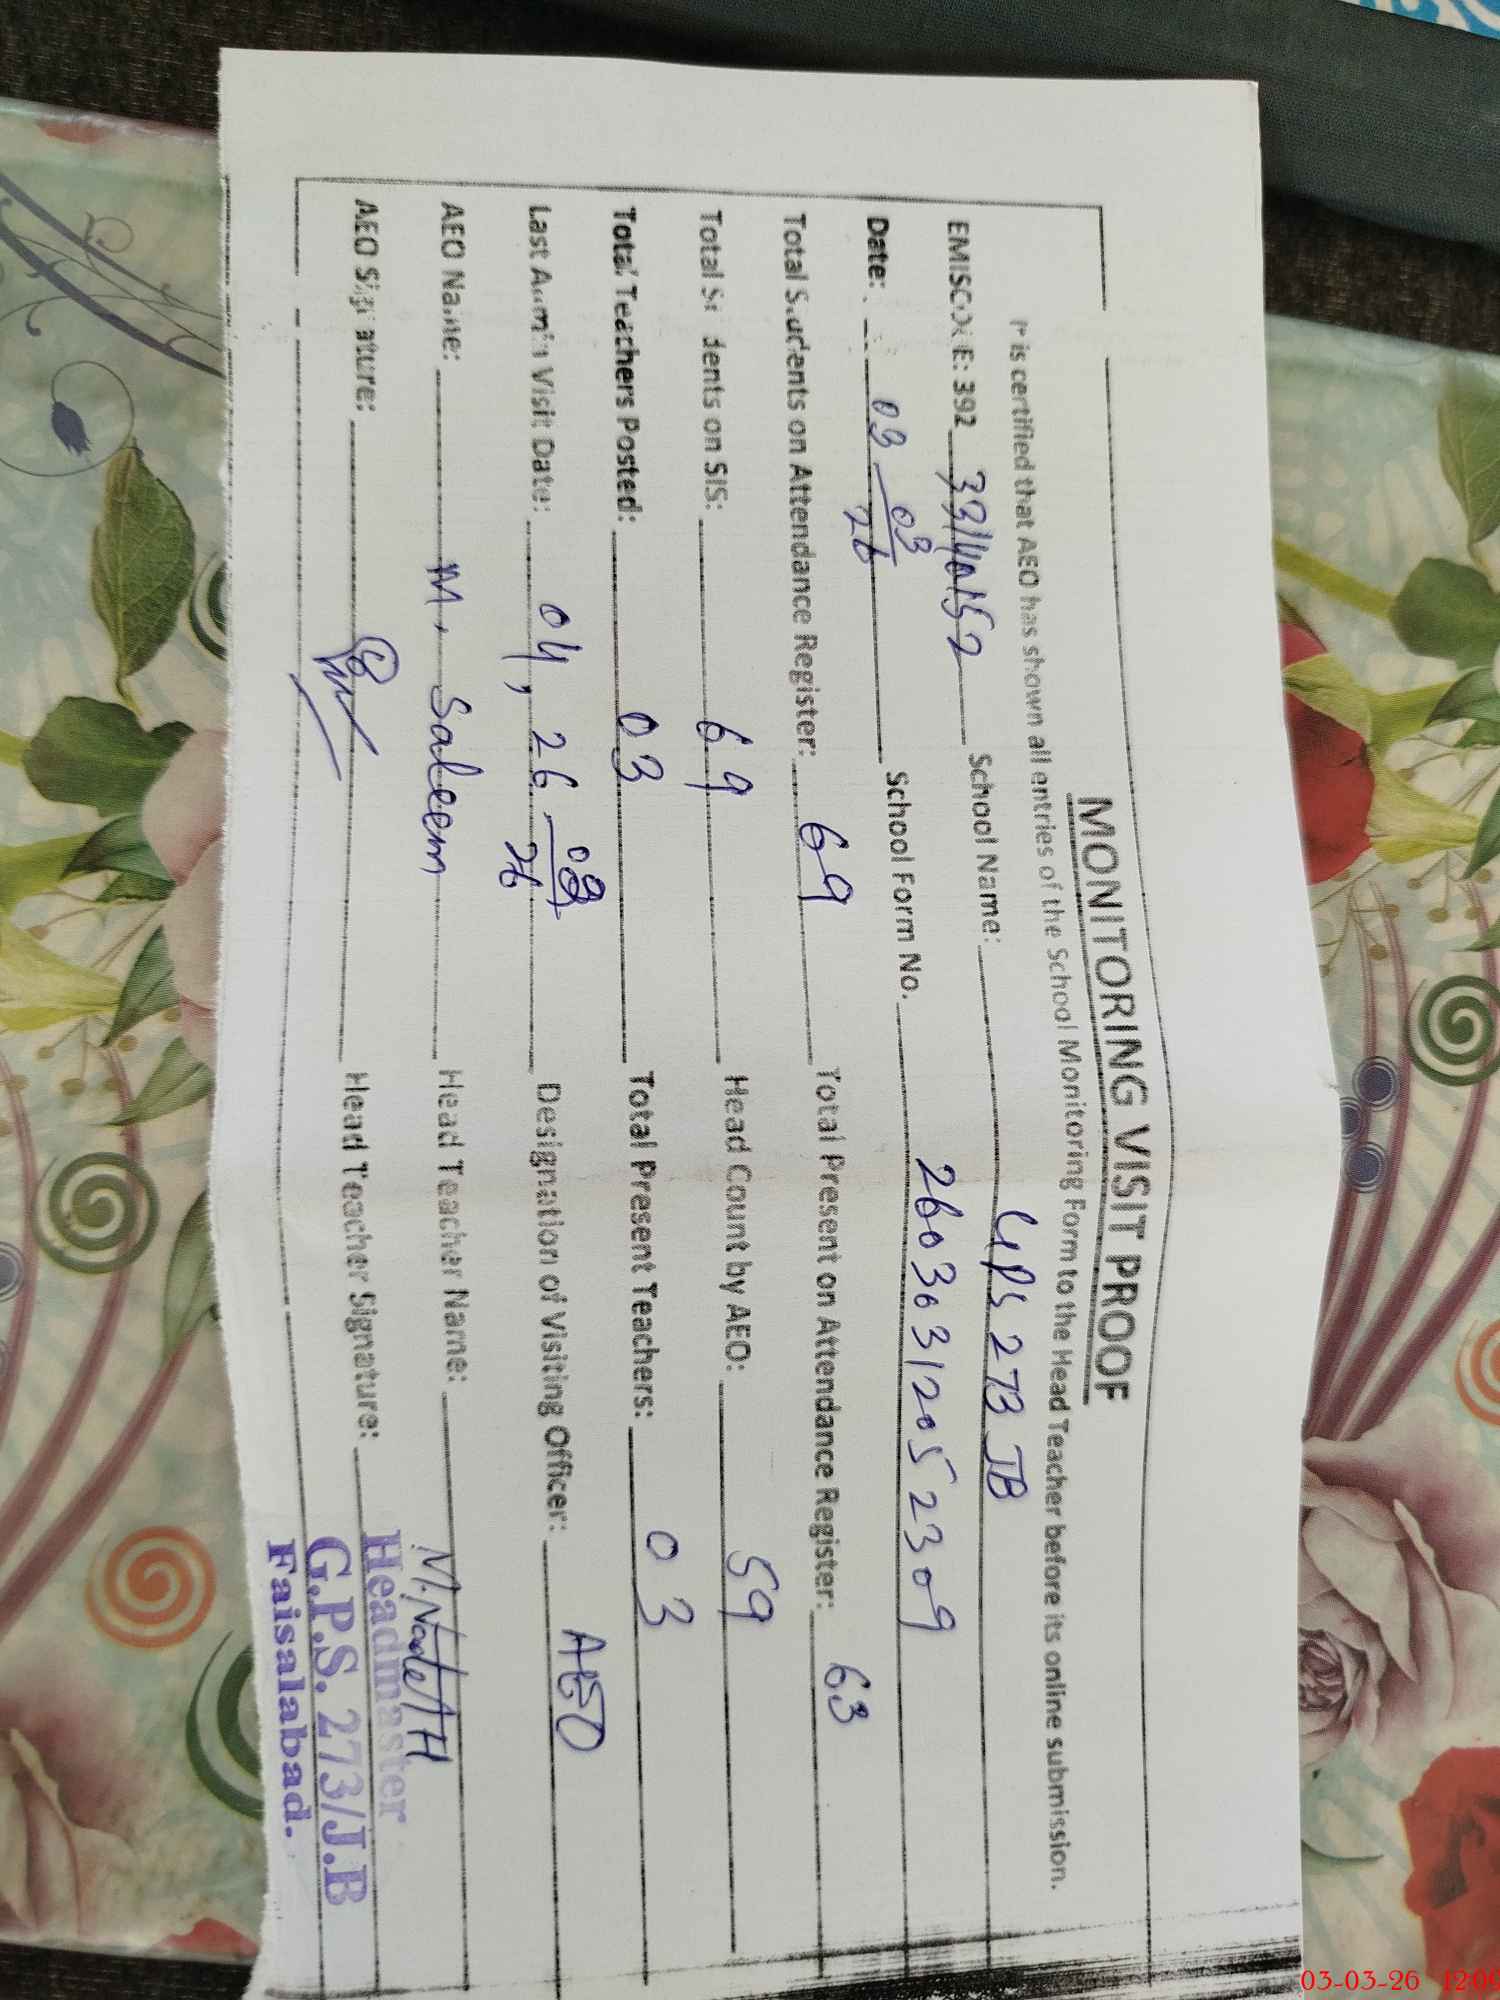 MONITORING VISIT PROOF
It is certified that AEO has shown all entries of the School Monitoring Form to the Head Teacher before its online submission.
EMISCODE: 392 33140152 School Name: GPS 273 JB
Date: 03-03-26 School Form No. 2603031205 2309
Total Students on Attendance Register: 69 Total Present on Attendance Register: 63
Total Students on SIS: 69 Head Count by AEO: 59
Total Teachers Posted: 03 Total Present Teachers: 03
Last Admin Visit Date: 04, 26 Designation of Visiting Officer: AEO
AEO Name: M. Saleem Head Teacher Name:
AEO Signature: Head Teacher Signature:
Headmaster
G.P.S. 273/J.B
Faisalabad.
03-03-26 12:09